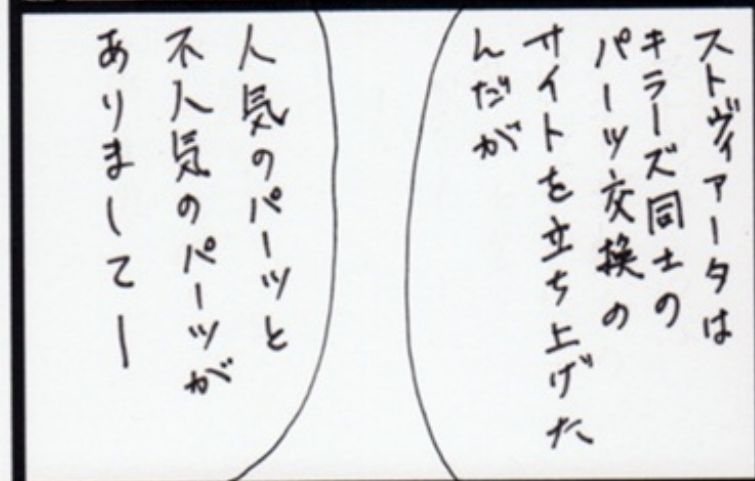 ストヴィアータは
キラーズ同士の
パーツ交換の
サイトを立ち上げた
んだが
人気のパーツと
不人気のパーツが
ありましてー